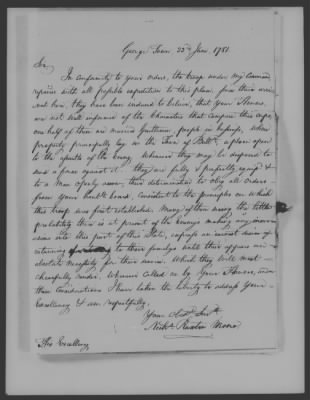 George Town 22d June 1781
Sir,
In conformity to your orders, the troop under my Command
repaired with all possible expedition to this place from their arri-
val here, they have been induced to believe, that your Honor,
are not well informed of the Characters that compose this corps
one half of them are married Gentlemen, people in business, whose
property principally lay in the Town of Balto. a place open
to the assaults of the Enemy, whenever they may be disposed to
send a force against it. they are fully &
to a Man openly avow, their determination to obey all orders
from your Honble board, consistent to the principles on which
this troop was first established. Many of them seeing the little
probability there is at present of the Enemys making any incur-
sions into this part of the State, express an earnest desire of
returning to their familys until there appears an
absolute necessity for their service. Which they will most
chearfully render, whenever called on by Your Honors, under
these considerations I have taken the liberty to address Your
Excellency & am respectfully.
Your Obdt. Servt.
Nichs. Ruxton Moore
His Excellency